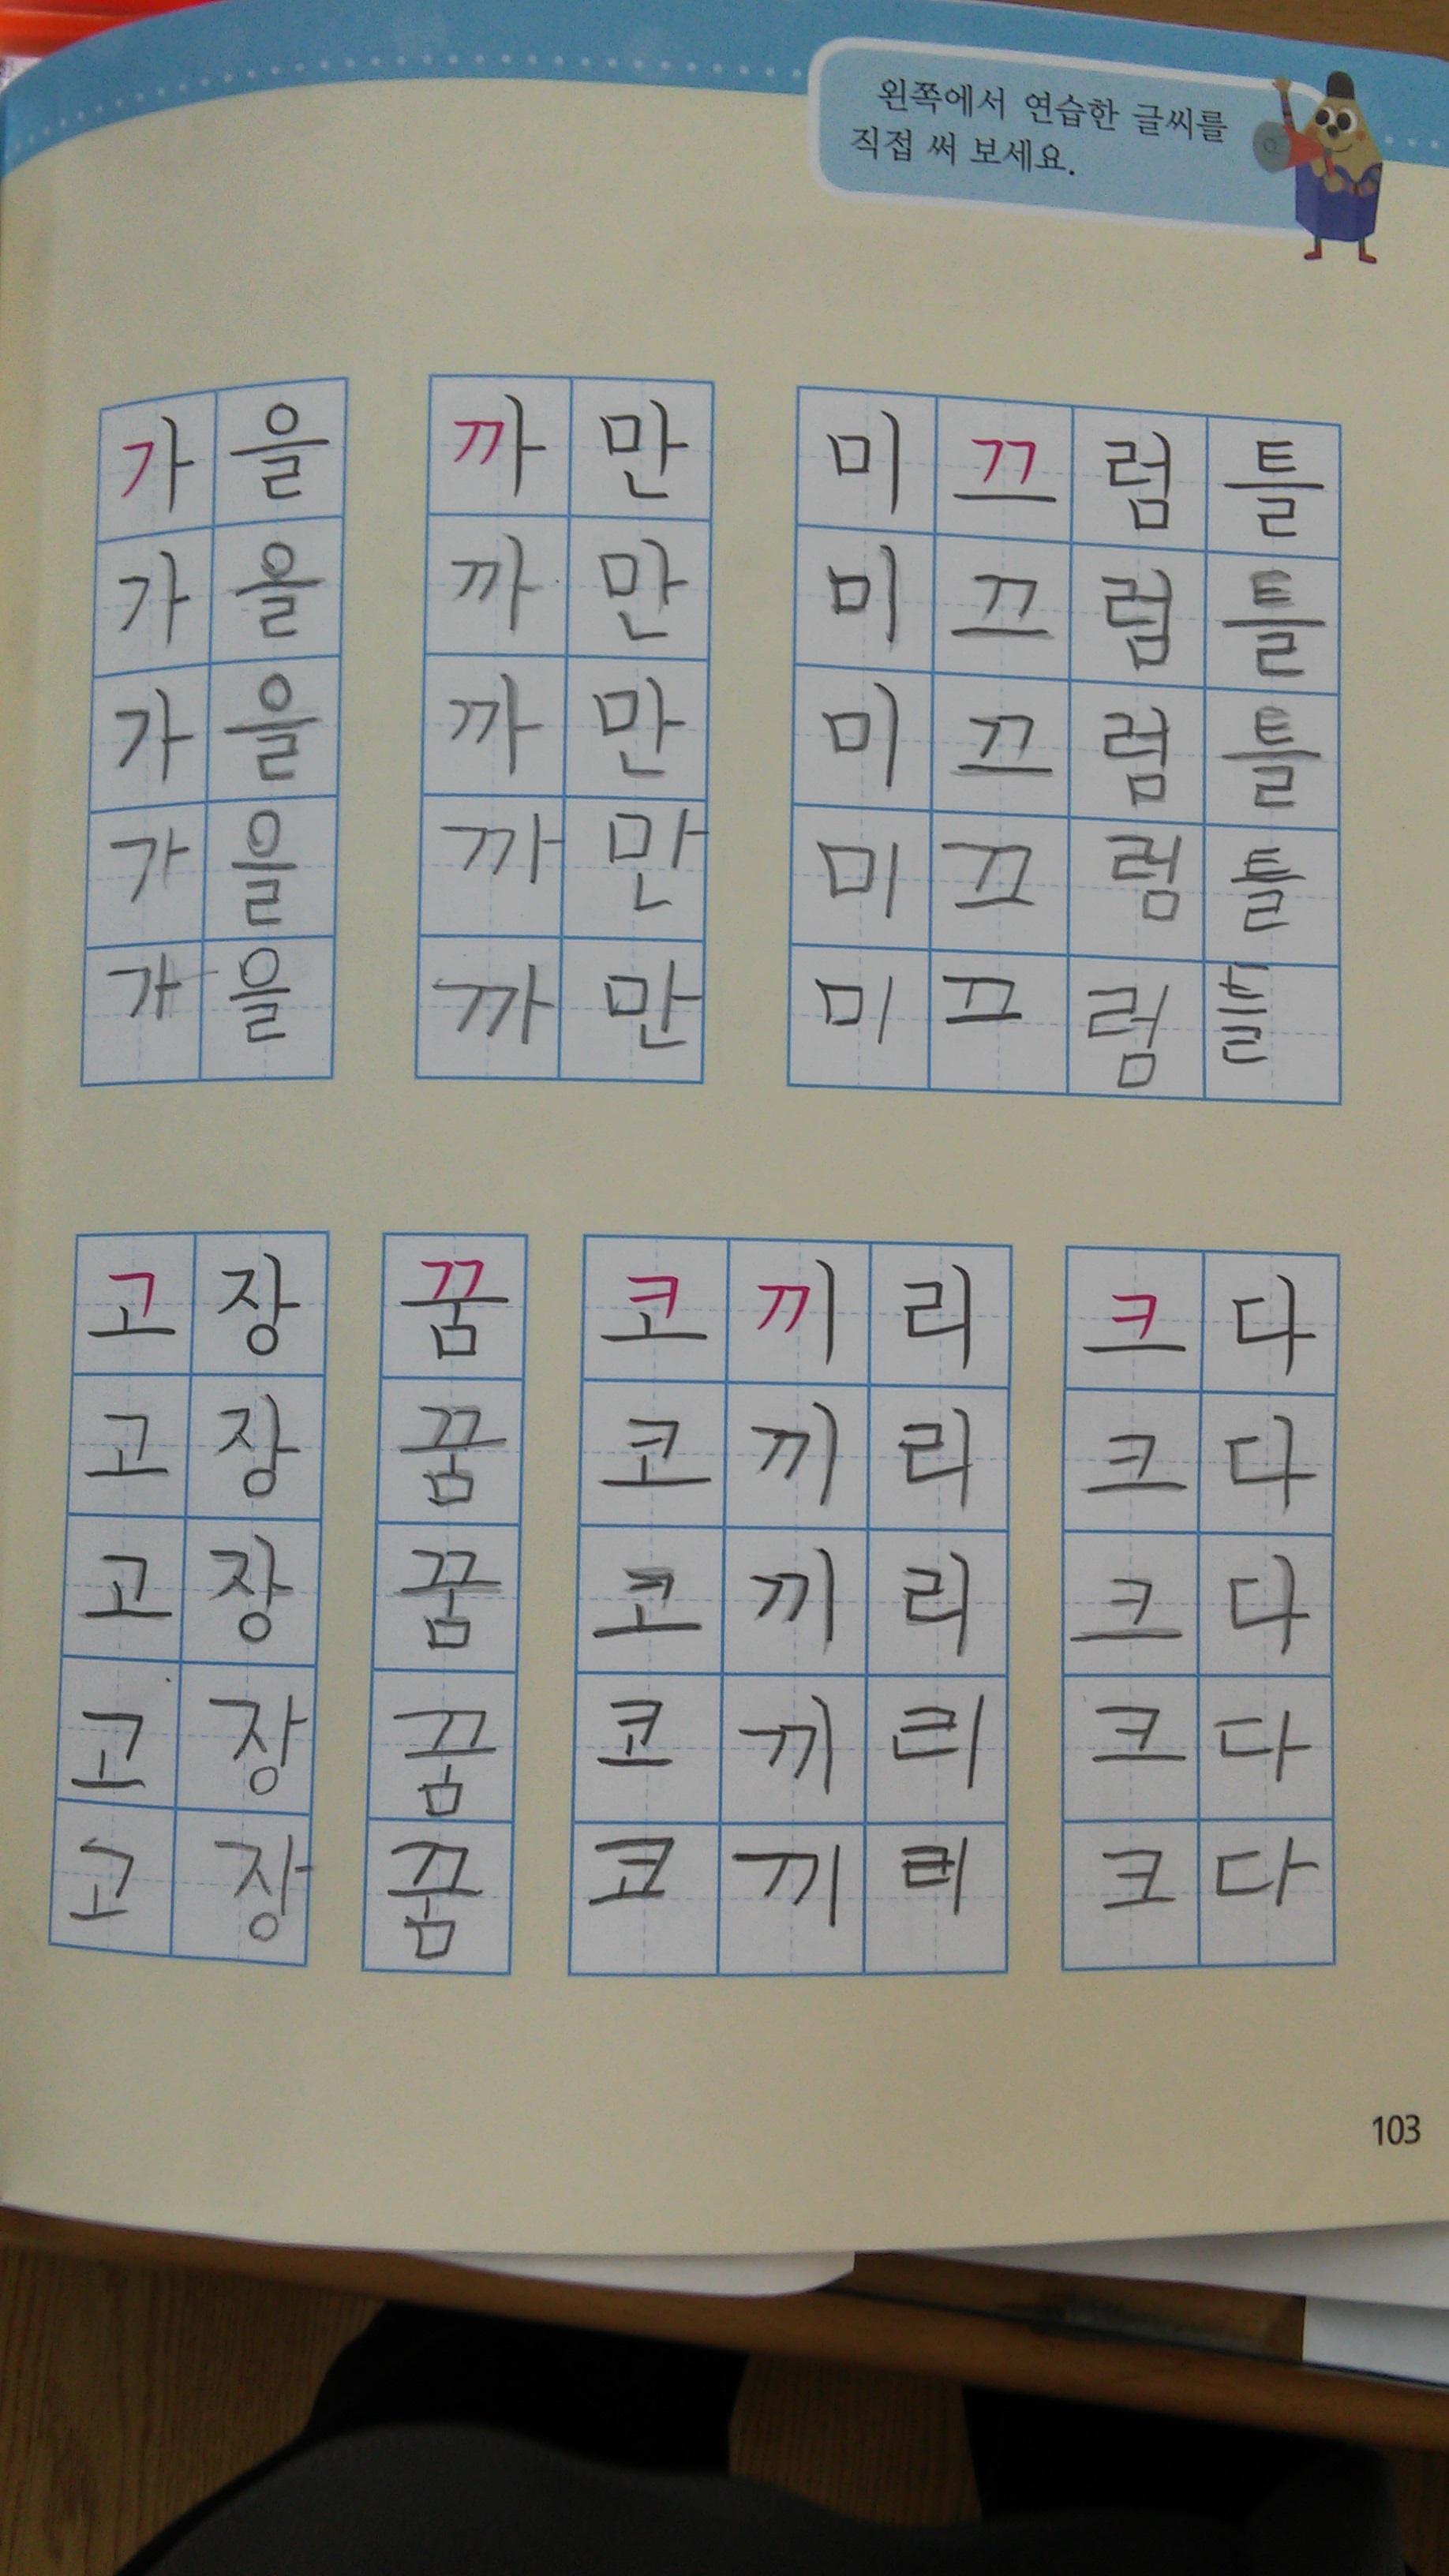 왼쪽에서 연습한 글씨를
직접 써 보세요.
가을 까만 미끄럼틀
가을 까만 미끄럼틀
가을 까만 미끄럼틀
가을 까만 미끄럼틀
가을 까만 미끄럼틀
고장 꿈 코끼리 크다
고장 꿈 코끼리 크다
고장 꿈 코끼리 크다
고장 꿈 코끼리 크다
고장 꿈 코끼리 크다
103